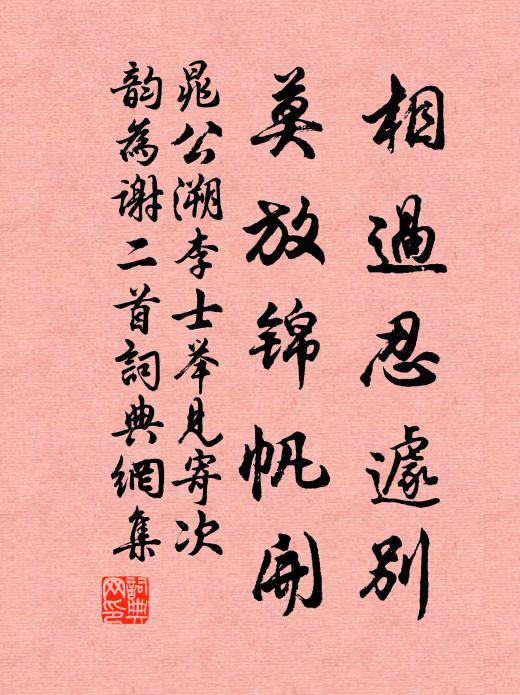 相過忍遽別
莫放锦帆開
晁公溯李士举見寄次
韵為谢二首詞典網集
詞典网印